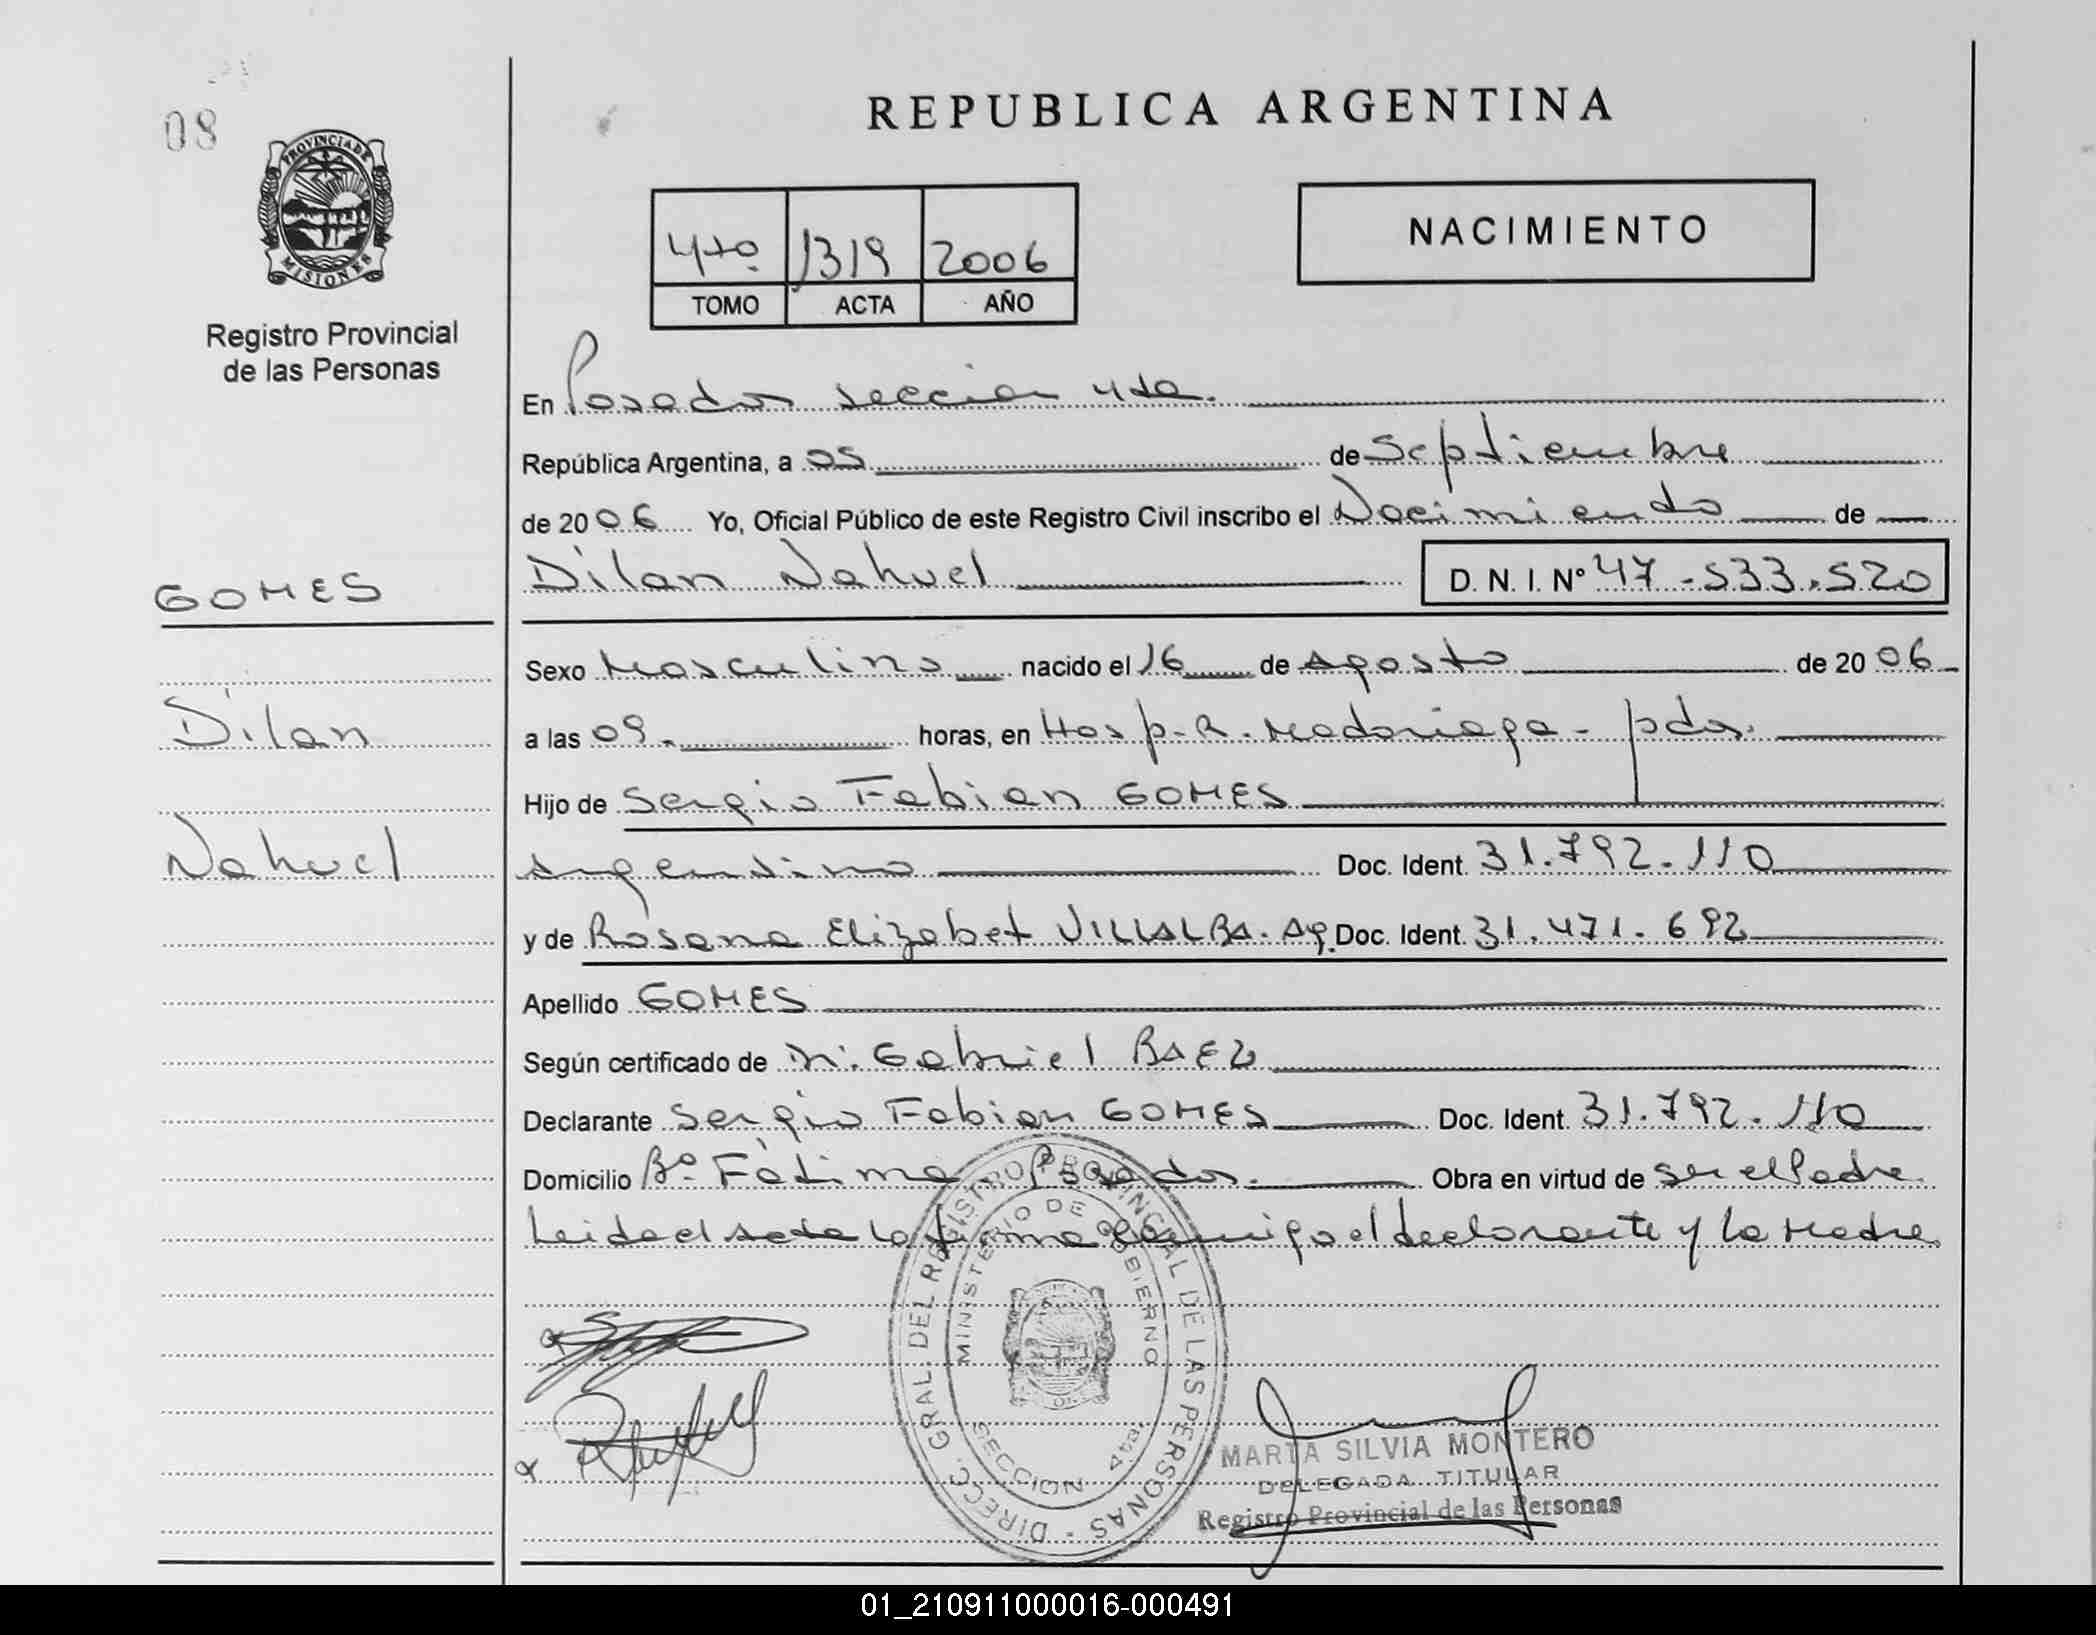 08
PROVINCIA DE
MISIONES
Registro Provincial
de las Personas
GOMES
Dilan
Nahuel
REPUBLICA ARGENTINA
4to 1319 2006
TOMO ACTA AÑO
NACIMIENTO
En Posadas sección 4ta.
República Argentina, a 05 de Septiembre
de 2006 Yo, Oficial Público de este Registro Civil inscribo el Nacimiento de
Dilan Nahuel D. N. I. Nº 47.533.520
Sexo Masculino nacido el 16 de Agosto de 2006
a las 09. horas, en Hosp. R. Madariaga - pdas.
Hijo de Sergio Fabian GOMES
Argentino Doc. Ident. 31.792.110
y de Rosana Elizabet VILLALBA. Ag. Doc. Ident. 31.471.692
Apellido GOMES
Según certificado de Dr. Gabriel BAEZ
Declarante Sergio Fabian GOMES Doc. Ident. 31.792.110
Domicilio Bº. Fátima Posadas. Obra en virtud de ser el Padre
Leida el acta la firma conmigo el declarante y la Madre
DIRECC. GRAL. DEL REGISTRO PROVINCIAL DE LAS PERSONAS -
MINISTERIO DE GOBIERNO
SECCION 4ta.
MARTA SILVIA MONTERO
DELEGADA TITULAR
Registro Provincial de las Personas
01_210911000016-000491